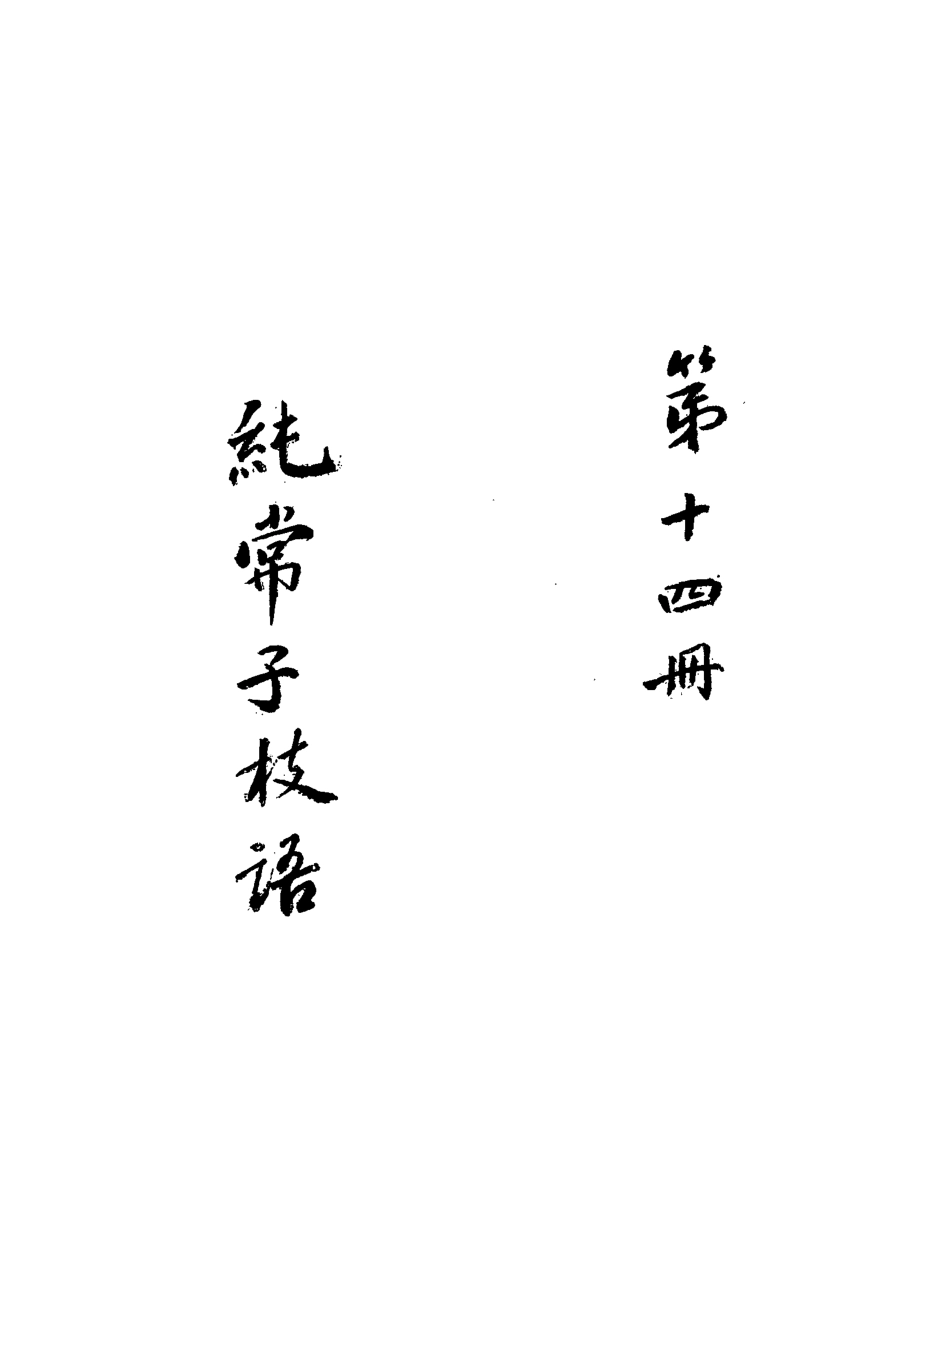 第十四冊
純常子枝語